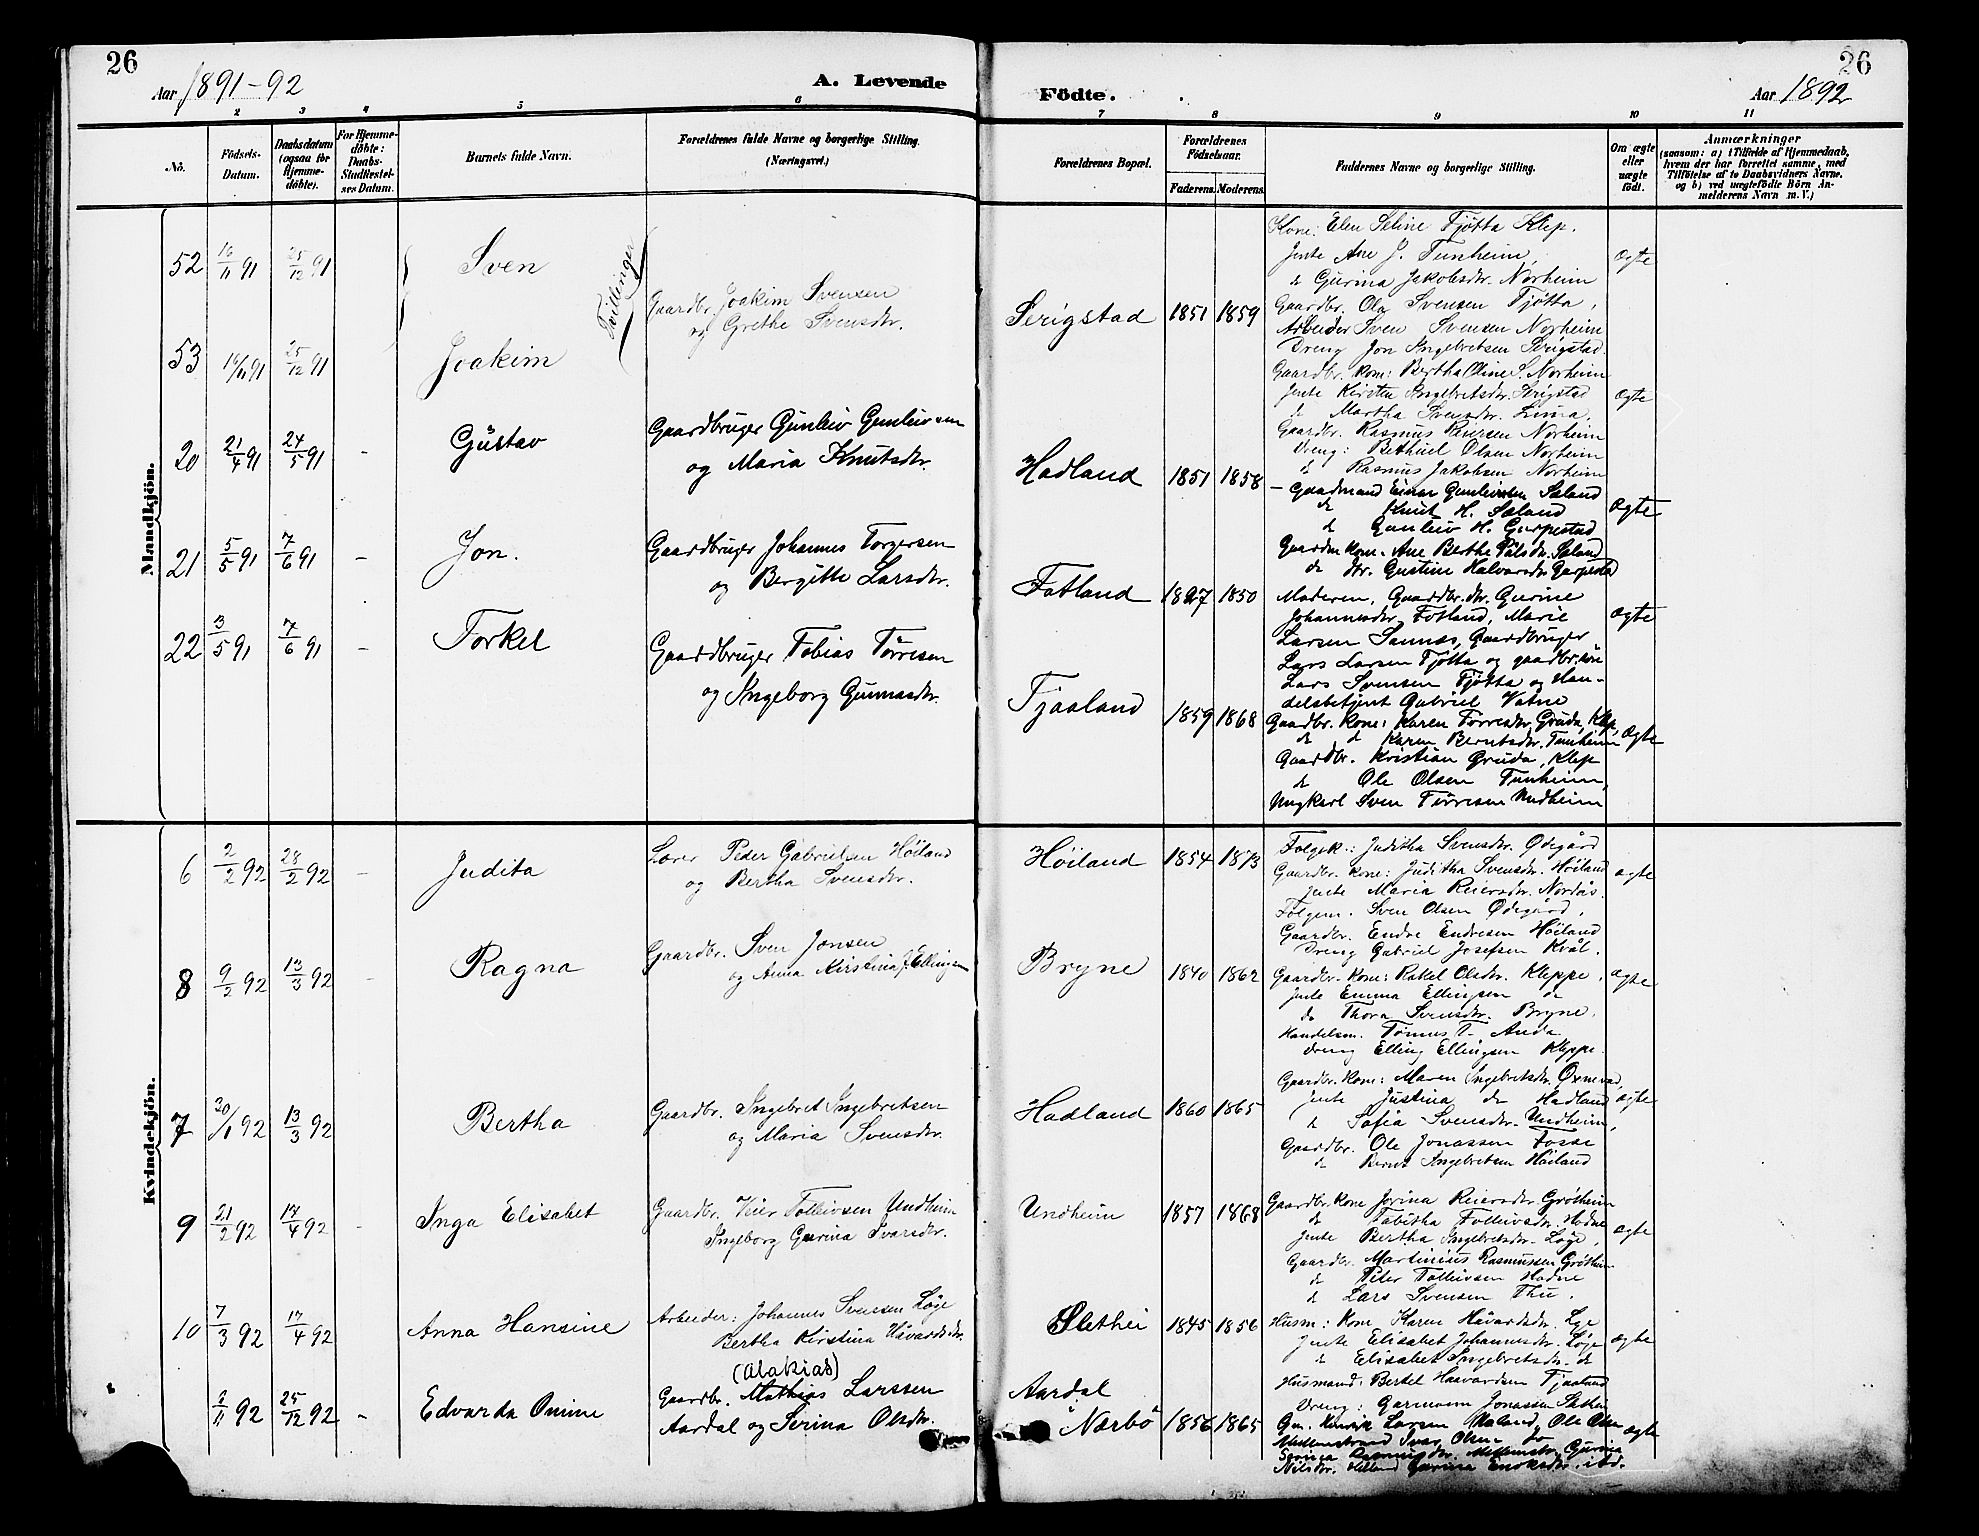 26
26
Aar 1891-92
A. Levende
Födte.
Aar 1892
2 3 4 5 6 7 8 9 10 11
No.
Födsels-Datum.
Daabsdatum (ogsaa for Hjemme-døbte).
For Hjemme-døbte: Daabs-Stadfæstel-ses Datum.
Barnets fulde Navn.
Forældrenes fulde Navne og borgerlige Stilling. (Næringsvei.)
Forældrenes Bopæl.
Forældrenes Födselsaar.
Faderens. Moderens.
Faddernes Navne og borgerlige Stilling.
Om ægte eller uægte født.
Anmærkninger
(saasom: a) i Tilfælde af Hjemmedaab, hvem der har forrettet samme, med Tilföielse af to Daabsvidners Navne, og b) ved uægtefødte Börn An-melderens Navn m. V.)
Mandkjön.
52 16/11 91 25/12 91 Sven
Tvillinger
Gaardbr. Joakim Svensen
og Grethe Svensdtr.
Serigstad 1851 1859
Kone: Elen Seline Tjøtta Klep.
Jente Ane J. Tunheim,
d Gurina Jakobsdtr. Norheim
Gaardbr. Ola Svensen Tjøtta,
Arbeider Sven Svensen Norheim
Dreng Jon Ingebretsen Serigstad.
ægte
53 16/11 91 25/12 91 Joakim
Gaardbr. kone: Bertha Oline S. Norheim
Jente Kirsten Ingebretsdtr. Serigstad
d Martha Svensdtr. Lima,
Gaardbr. Rasmus Reiersen Norheim
Dreng: Bethuel Olsen Norheim
d Rasmus Jakobsen Norheim
ægte
20 21/4 91 24/5 91 - Gustav
Gaardbruger Gunleiv Gunleivsen
og Maria Knutsdtr.
Hadland 1851 1858
- Gaardmand Einar Gunleivsen Saland
d Knut H. Saland
d Gunleiv H. Garpestad
Gaardm. kone. Ane Berthe Pålsdtr. Saland
d dtr. Gustine Halvorsdtr Garpestad
ægte
21 5/5 91 7/6 91 - Jon.
Gaardbruger Johannes Torgersen
og Bergitte Larsdtr.
Fotland 1847 1850
Moderen, Gaardbr. dtr. Gurine
Johannesdtr Fotland, Marie
Larsen Sannæs, Gaardbruger
Lars Larsen Tjøtta og gaardbr. søn
Lars Svensen Tjøtta og Han-
delsbetjent Gabriel Vatne
ægte
22 3/5 91 7/6 91 - Torkel
Gaardbruger Tobias Tørresen
og Ingeborg Gunnarsdtr.
Tjaaland 1859 1868
Gaardbr. kone: Karen Tørresdtr. Gruda, Klep,
d d Karen Berntsdtr. Tunheim
Gaardbr. Kristian Gruda, Klep
d Ole Olsen Tunheim,
Ungkarl Sven Tørresen Undheim
ægte
Kvindekjön.
6 2/2 92 28/2 92 - Judita
Lærer Peder Gabrielsen Höiland
og Bertha Svensdtr.
Höiland 1854 1873
Folgek.: Juditha Svensdtr. Ødegård
Gaardbr. kone: Juditha Svensdtr. Höiland
Jente Maria Reiersdtr. Nordås.
Folgem. Sven Olsen Ødegård,
Gaardbr. Endre Endresen Höiland
Dreng Gabriel Josefsen Kvål.
ægte
8 9/2 92 13/3 92 - Ragna
Gaardbr. Sven Jonsen
og Anna Kirstina f. Ellingsen
Bryne 1840 1862
Gaardbr. Kone: Rakel Olsdtr. Kleppe,
Jente Emma Ellingsen d
d Thora Svensdtr. Bryne.
Handelsm. Tönnes T. Anda
Dreng Elling Ellingsen Kleppe.
ægte
7 30/1 92 13/3 92 Bertha
Gaardbr. Ingebret Ingebretsen
og Maria Svensdtr.
Hadland 1860 1865
Gaardbr. Kone: Maren Ingebretsdtr. Oxnevad,
Jente Justina d Hadland
d Sofia Svensdtr. Undheim,
Gaardbr. Ole Jonassen Fosse
d Bernt Ingebretsen Höiland
ægte
9 21/2 92 17/4 92 - Inga Elisabet
Gaardbr. Reier Tolleivsen Undheim
Ingeborg Gurina Ivarsdtr.
Undheim 1857 1868
Gaardbr. Kone Jorina Reiersdtr. Grötheim
d Tabitha Tolleivsdtr. Hodne
Jente Bertha Ingebretsdtr. Löge,
Gaardbr. Martinius Rasmussen Grötheim
d Peter Tolleivsen Hodne
d Lars Svensen Thu.
ægte
10 7/3 92 17/4 92 Anna Hansine
Arbeider: Johannes Svensen Löge
Bertha Kirstina Håvardsdtr.
Slethei 1845 1856
Husm: Kone Karen Håvardsdtr. Lge
Jente Elisabet Johannesdtr. Löge
d Elisabet Ingebretsdtr. d
Husmand. Bertel Haavardsen Tjaaland
Dreng: Garmann Jonassen
ægte
2/11 92 25/12 92 - Edvarda Omine
(Malakias)
Gaardbr. Mathias Larssen
Aardal og Serina Olsdtr.
Aardal
i Nærbö 1856 1865
Gm. Henrik Larsen Ole Olsen
Ivar Olsen do
Serina Rasmusdtr. Gurina
Nilsdtr. Gurina Enoksdtr. ibd.
ægte